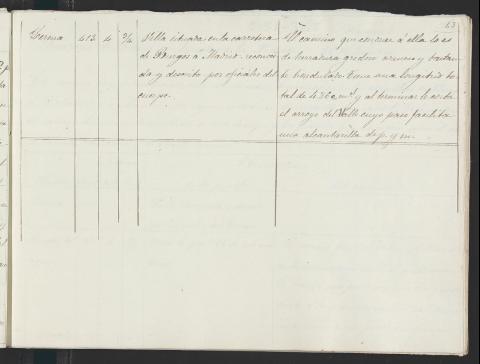 63
Lerma 413 4 3/4 Villa situada en la carretera
de Burgos á Madrid, reconoci
da y descrita por oficiales del
cuerpo.
El camino que conduce á ella lo es
de herradura gredoso arenoso y bastan
te hondulado. Tiene una longitud to
tal de 4360 m.s y al terminar le corta
el arroyo del Valle cuyo paso facilita
una alcantarilla de p. y m.